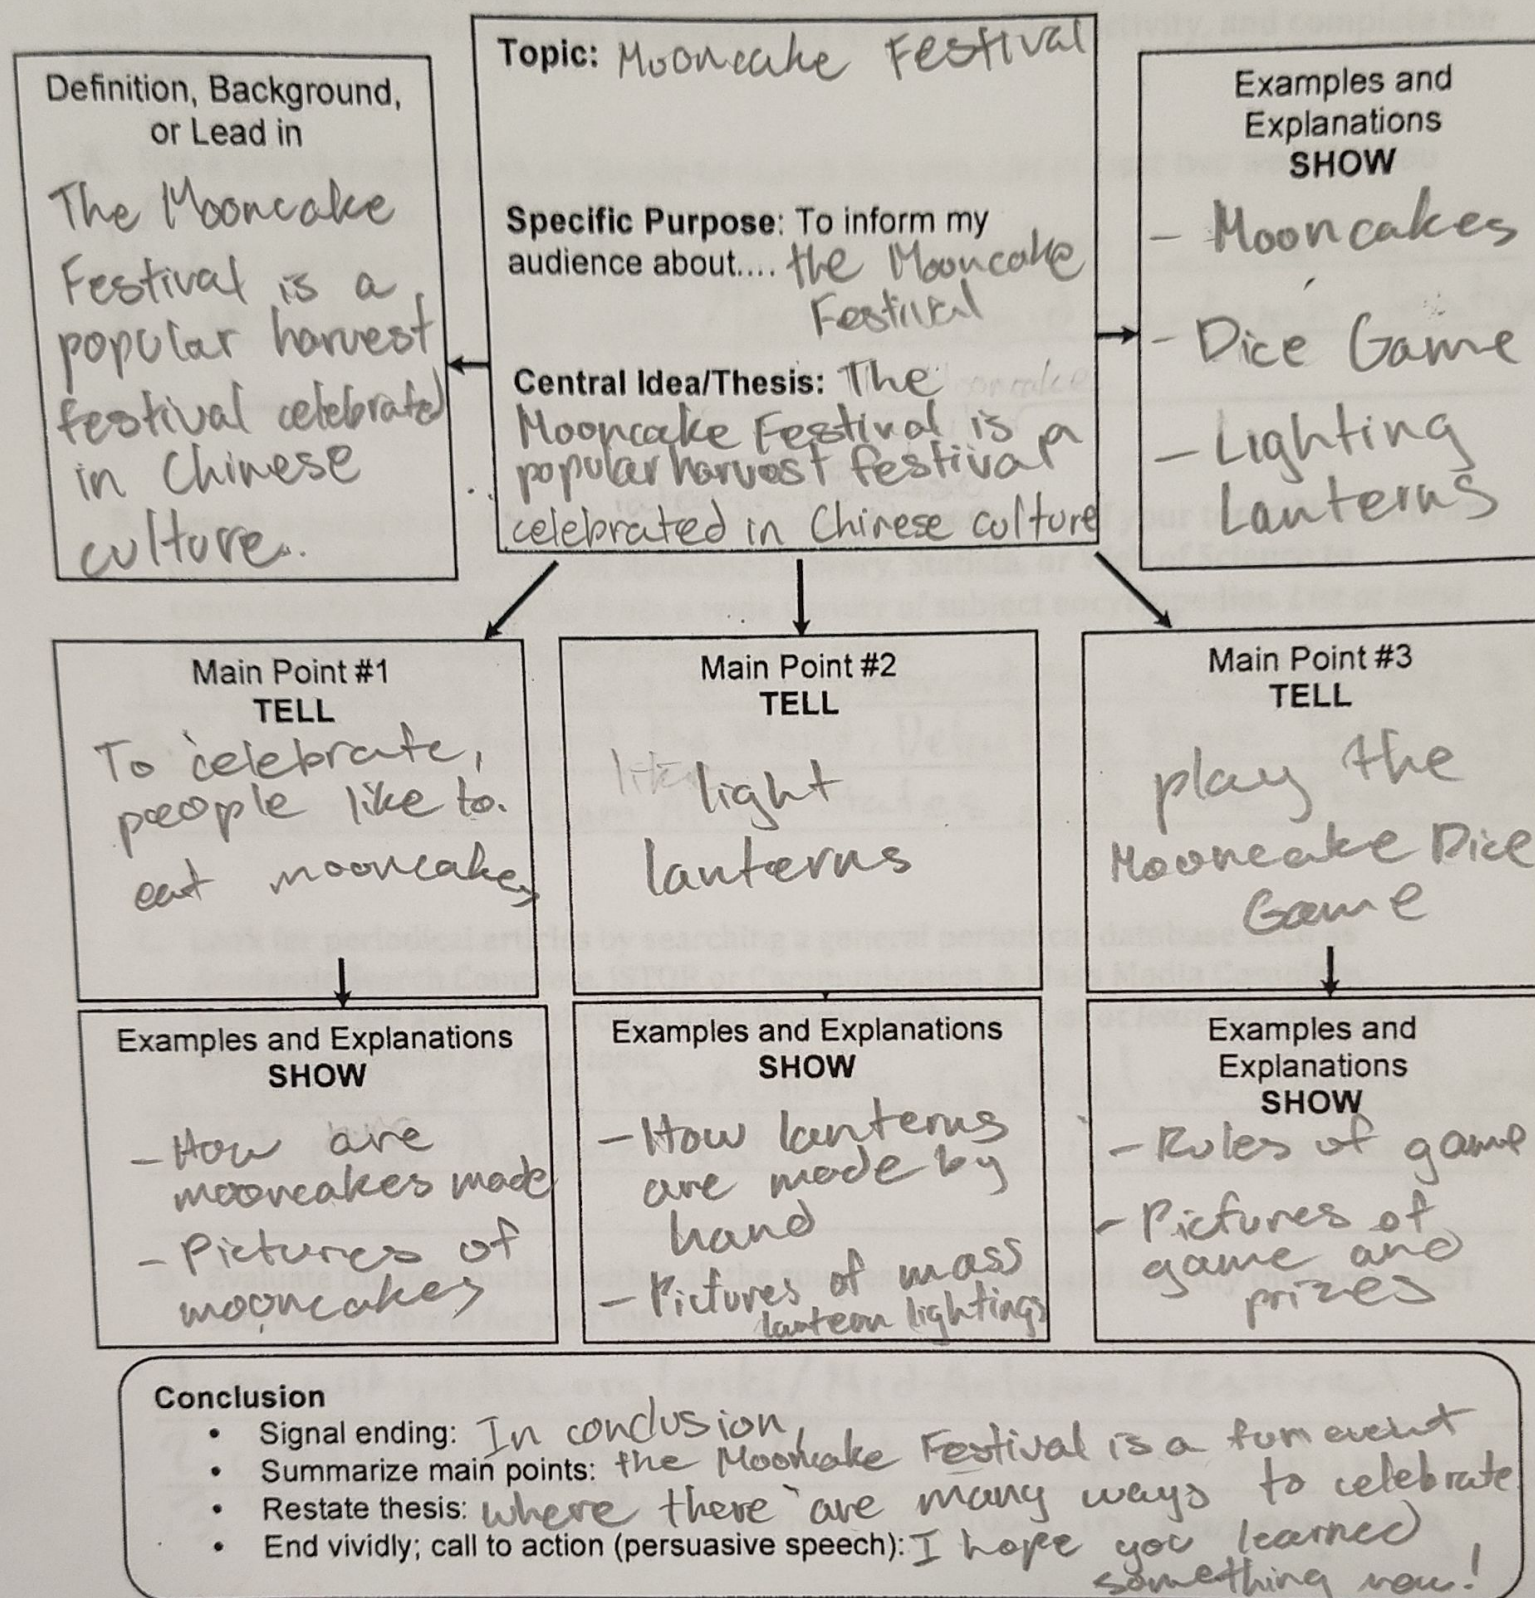 Topic: Mooncake Festival
Specific Purpose: To inform my
audience about.... the Mooncake
Festival
Central Idea/Thesis: The
Mooncake Festival is a
popular harvest festival
celebrated in Chinese culture
Definition, Background,
or Lead in
The Mooncake
Festival is a
popular harvest
festival celebrated
in Chinese
culture.
Examples and
Explanations
SHOW
- Mooncakes
- Dice Game
- Lighting
Lanterns
Main Point #1
TELL
To celebrate,
people like to
eat mooncakes
Main Point #2
TELL
light
lanterns
Main Point #3
TELL
play the
Mooncake Dice
Game
Examples and Explanations
SHOW
- How are
mooncakes made
- Pictures of
mooncakes
Examples and Explanations
SHOW
- How lanterns
are made by
hand
- Pictures of mass
lantern lightings
Examples and
Explanations
SHOW
- Rules of game
- Pictures of
game and
prizes
Conclusion
• Signal ending: In conclusion,
• Summarize main points: the Mooncake Festival is a fun event
• Restate thesis: where there are many ways to celebrate
• End vividly; call to action (persuasive speech): I hope you learned
something new!